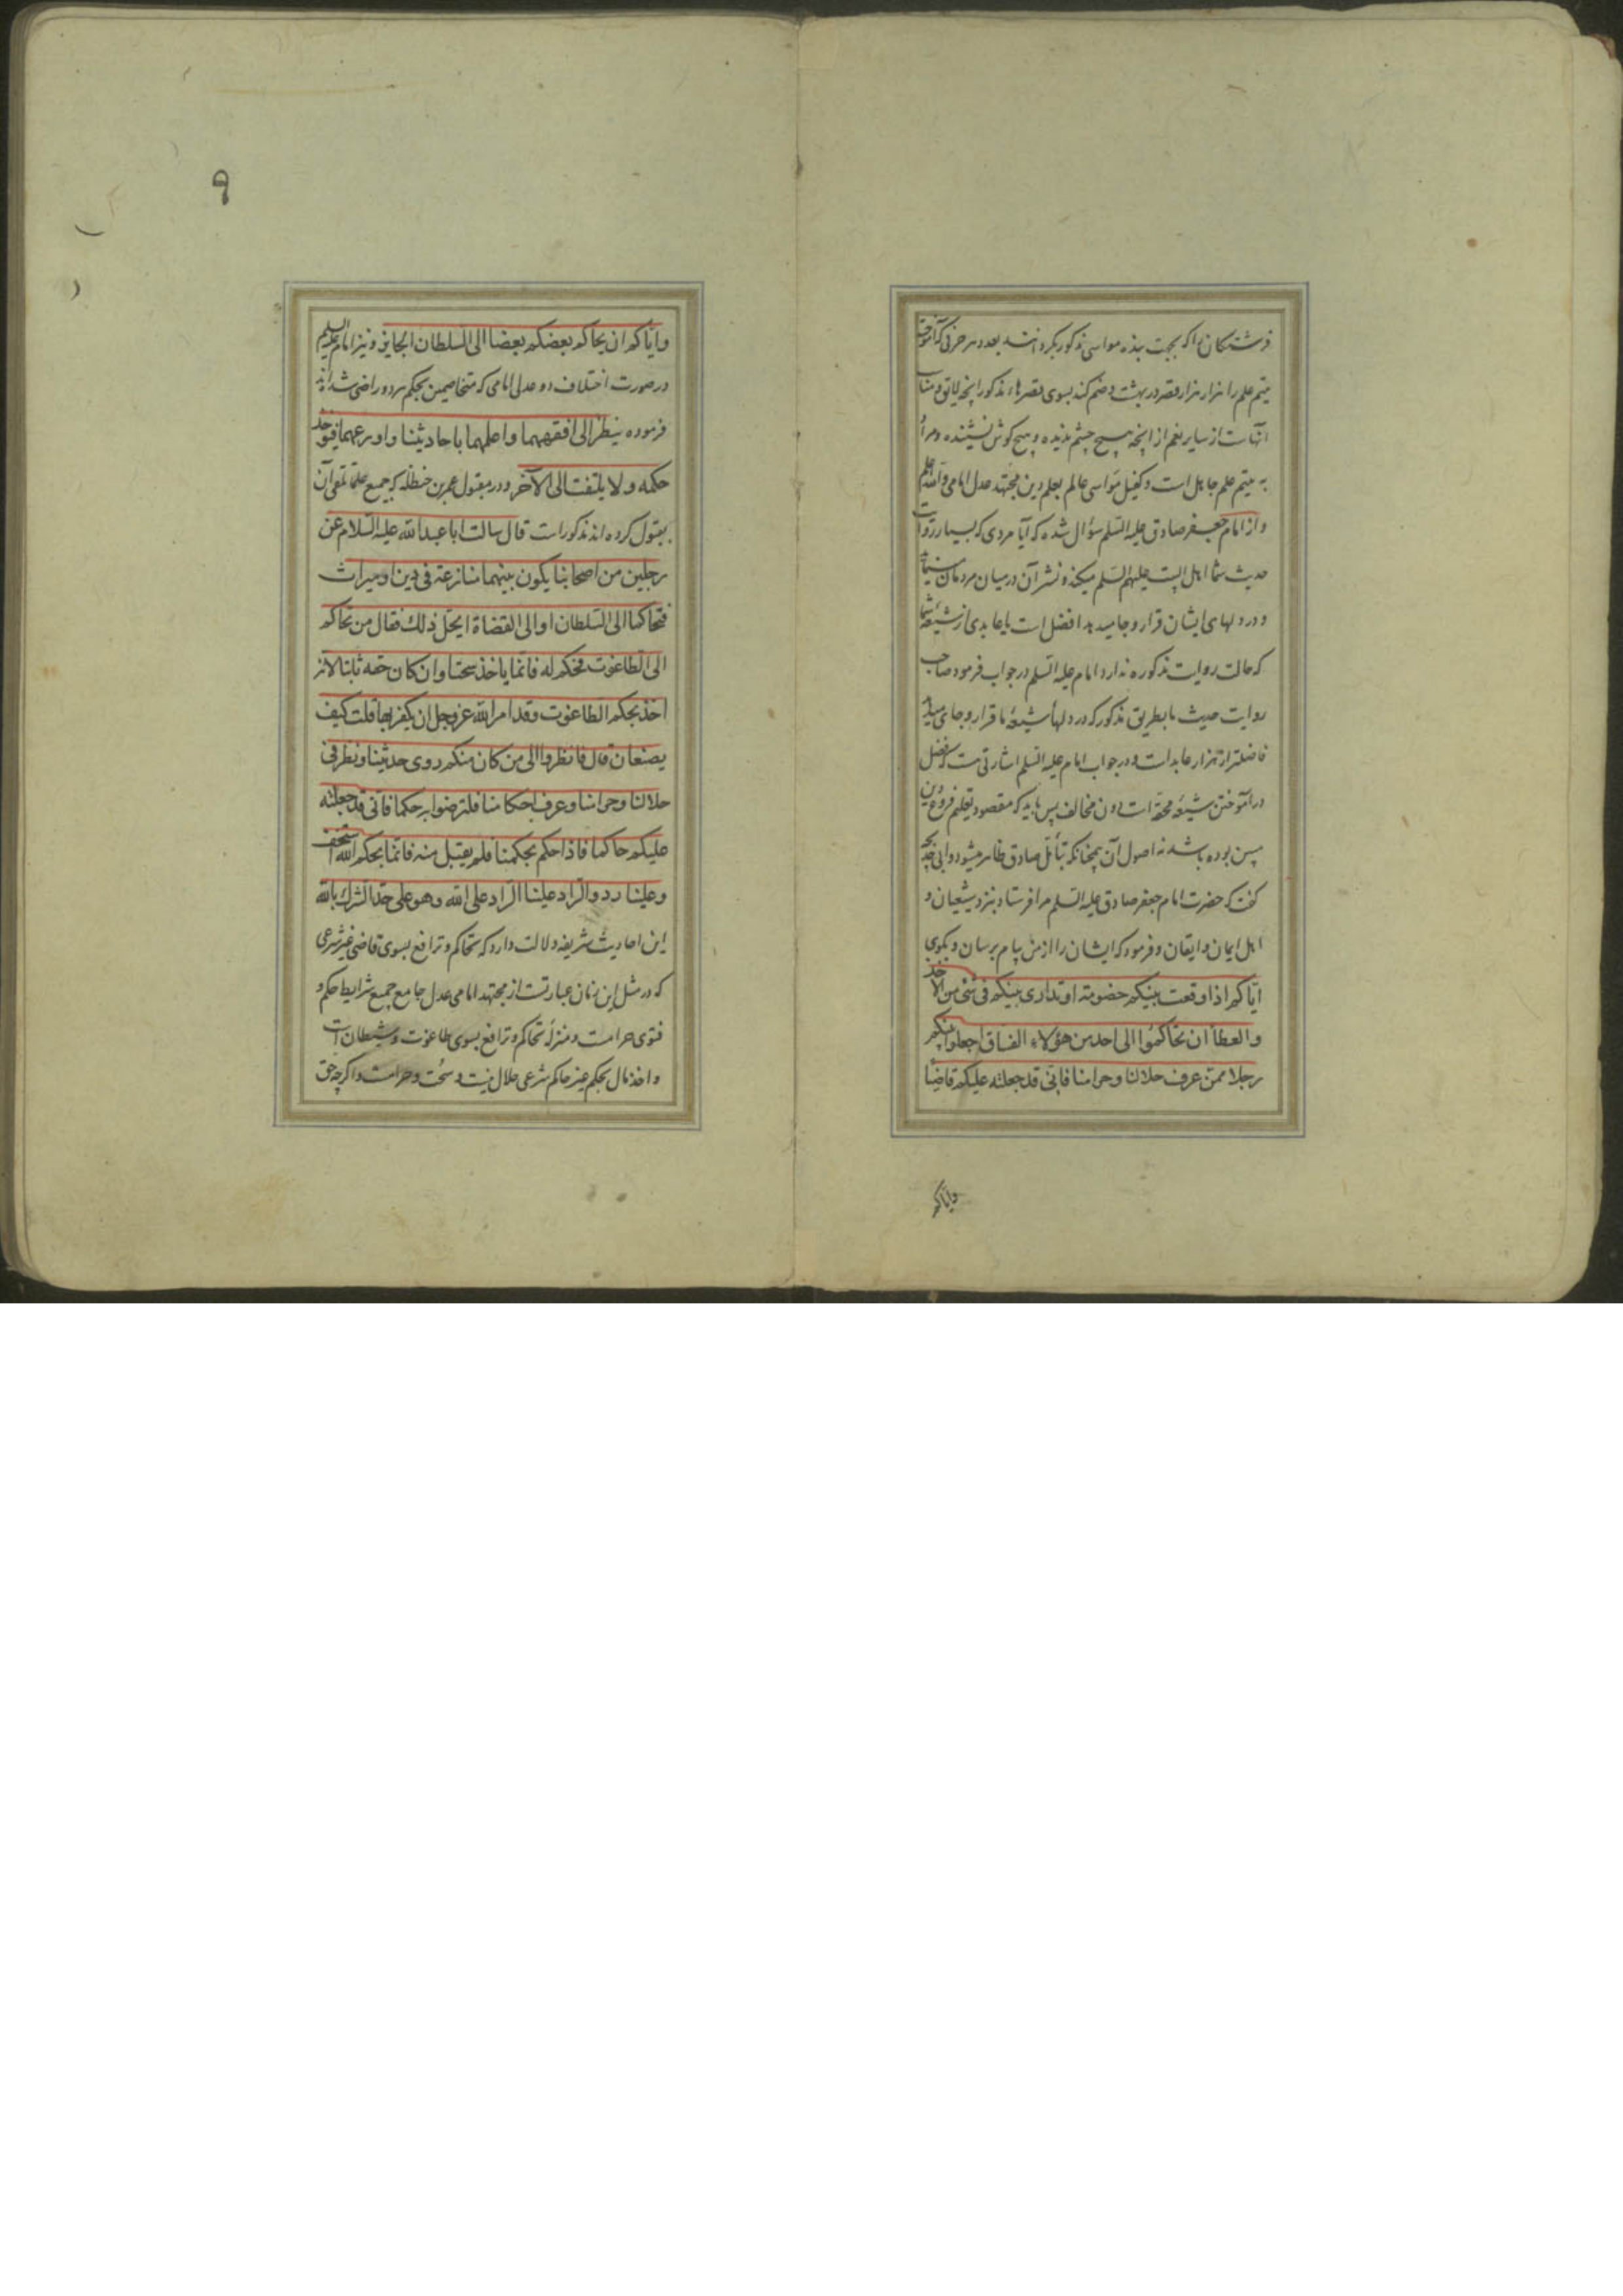 فرشتگان را که بجهت بنده مواسی مذکور بکردانند بعدد هر حرفی که آموخته
یتیم علم را هزار هزار قصر در بهشت و ضم کنند بسوی قصرهاء مذکور انچه لایق و مناسب
آنهاست از سایر نعم از انچه هیچ چشم ندیده و هیچ کوش نشنیده و مراد
به یتیم علم جاهل است و کفیل مواسی عالم بعلم دین مجتهد عدل امامی والله اعلم
و از امام جعفر صادق علیه السلم سؤال شده که آیا مردی که بسیار روایت
حدیث شما اهل البیت علیهم السلم میکند و نشر آن در میان مردمان مینماید
و در دلهای ایشان قرار و جا میدهد افضل است یا عابدی از شیعهٔ شما
که حالت روایت مذکوره ندارد امام علیه السلم در جواب فرمود صاحب
روایت حدیث ما بطریق مذکور که در دلهأ شیعهٔ ما قرار و جای میدهد
فاضلتر از هزار عابد است و در جواب امام علیه السلم اشارتی هست که فضل
در آموختن شیعهٔ محقه است دون مخالف پس باید که مقصود تعلیم فروع دین
مبین بوده باشد نه اصول آن همچنانکه بتأمل صادق ظاهر میشود و ابی خدیجه
کفت که حضرت امام جعفر صادق علیه السلم مرا فرستاد بنزد شیعیان و
اهل ایمان و ایقان و فرمود که ایشان را از من پیام برسان و بکوی
ایاکم اذا وقعت بینکم خصومة او تداری بینکم فی شئ من الاخذ
والعطأ ان تحاکموا الی احد من هؤلاء الفساق اجعلوا بینکم
رجلا ممن عرف حلالنا و حرامنا فانی قد جعلته علیکم قاضیا
وایاکم
۹
وایاکم ان یحاکم بعضکم بعضا الی السلطان الجایر و نیز امام علیه السلم
در صورت اختلاف دو عدل امامی که متخاصمین بحکم هر دو راضی شده اند
فرموده ینظر الی افقههما و اعلمهما باحادیثنا و اورعهما فینفذ
حکمه و لا یلتفت الی الآخر و در مقبول عمر بن حنظله که جمیع علما تلقی آن
بقبول کرده اند مذکور است قال سالت ابا عبدالله علیه السلام عن
رجلین من اصحابنا یکون بینهما منازعة فی دین او میراث
فتحاکما الی السلطان او الی القضاة ایحل ذلک فقال من تحاکم
الی الطاغوت فحکم له فانما یاخذ سحتا و ان کان حقه ثابتا لانه
اخذ بحکم الطاغوت وقد امر الله عز وجل ان یکفر بها قلت کیف
یصنعان قال فانظروا الی من کان منکم روی حدیثنا و نظر فی
حلالنا و حرامنا و عرف احکامنا فلترضوا به حکما فانی قد جعلته
علیکم حاکما فاذا حکم بحکمنا فلم یقبل منه فانما بحکم الله استخف
وعلینا رد والراد علینا الراد علی الله وهو علی حد الشرک بالله
این احادیث شریفه دلالت دارد که تحاکم و ترافع بسوی قاضی غیر شرعی
که در مثل این زمان عبارتست از مجتهد امامی عدل جامع جمیع شرایط حکم و
فتوی حرامست و منزلهٔ تحاکم و ترافع بسوی طاغوت و شیطان است
و اخذ مال بحکم غیر حاکم شرعی حلال نیست و سحت و حرامست و اکرچه حق